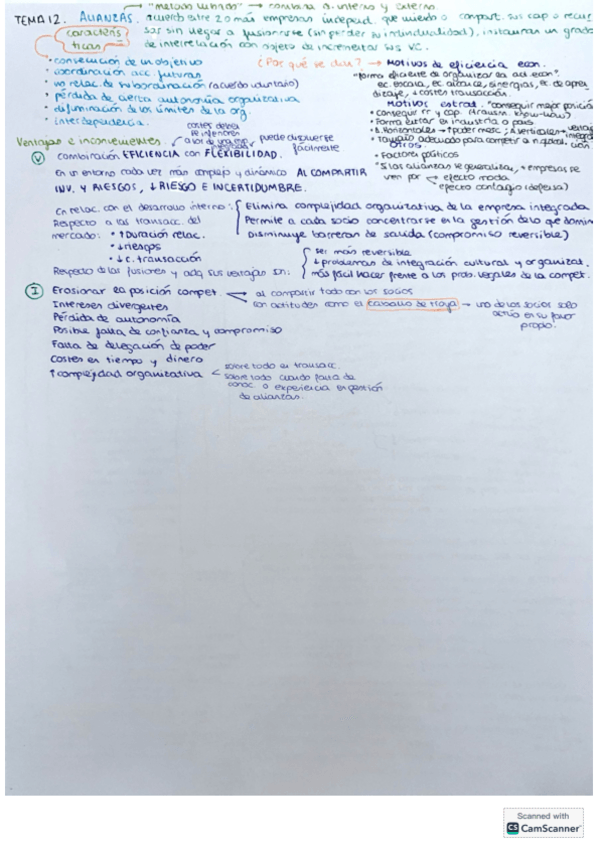 "método híbrido" → combina d. interno y externo.
TEMA 12. ALIANZAS. acuerdo entre 2 o más empresas independ. que uniendo o compart. sus cap o recur
caracterís ticas
sos sin llegar a fusionarse (sin perder su individualidad), instauran un grado
de interrelación con objeto de incrementar sus VC.
• consecución de un objetivo
• coordinación acc futuras
• no relac. de subordinación (acuerdo voluntario)
• pérdida de cierta autonomía organizativa
• difuminación de los límites de la org
• interdependencia.
¿Por qué se dan? → Motivos de eficiencia econ.
"forma eficiente de organizar la act. econ"
ec. escala, ec. alcance, sinergias, ec. de apren
dizaje, ↓ costes transacción.
Motivos estrat. "conseguir mejor posición
• conseguir rr y cap.
• Forma entrar en industria o país
• Tamaño adecuado para competir
Otros.
• Factores políticos
• Si las alianzas se generalizan, + empresas se
unen por → efecto moda
→ efecto contagio (defensa)
Ventajas e inconvenientes.
costes deben ser inferiores
puede disolverse fácilmente
V combinación EFICIENCIA con FLEXIBILIDAD.
En un entorno cada vez más complejo y dinámico AL COMPARTIR
INV. Y RIESGOS, ↓ RIESGO E INCERTIDUMBRE.
En relac. con el desarrollo interno:
Elimina complejidad organizativa de la empresa integrada
Permite a cada socio concentrarse en la gestión de lo que domin
Disminuye barreras de salida (compromiso reversible)
Respecto a las transacc. del
mercado: • ↑ Duración relac.
• ↓ riesgos
• ↓ c. transacción
Respecto de las fusiones y adq sus ventajas son:
ser más reversible
↓ problemas de integración cultural y organizat.
más fácil hacer frente a los prob. legales de la compet.
I Erosionar la posición compet.
al compartir todo con los socios
con actitudes como el caballo de troya → uno de los socios solo
actúa en su favor
propio.
Intereses divergentes
Pérdida de autonomía
Posible falta de confianza y compromiso
Falta de delegación de poder
Costes en tiempo y dinero
↑ complejidad organizativa
sobre todo en transacc.
sobre todo cuando falta de
conoc. o experiencia en gestión
de alianzas.
Scanned with
CS CamScanner